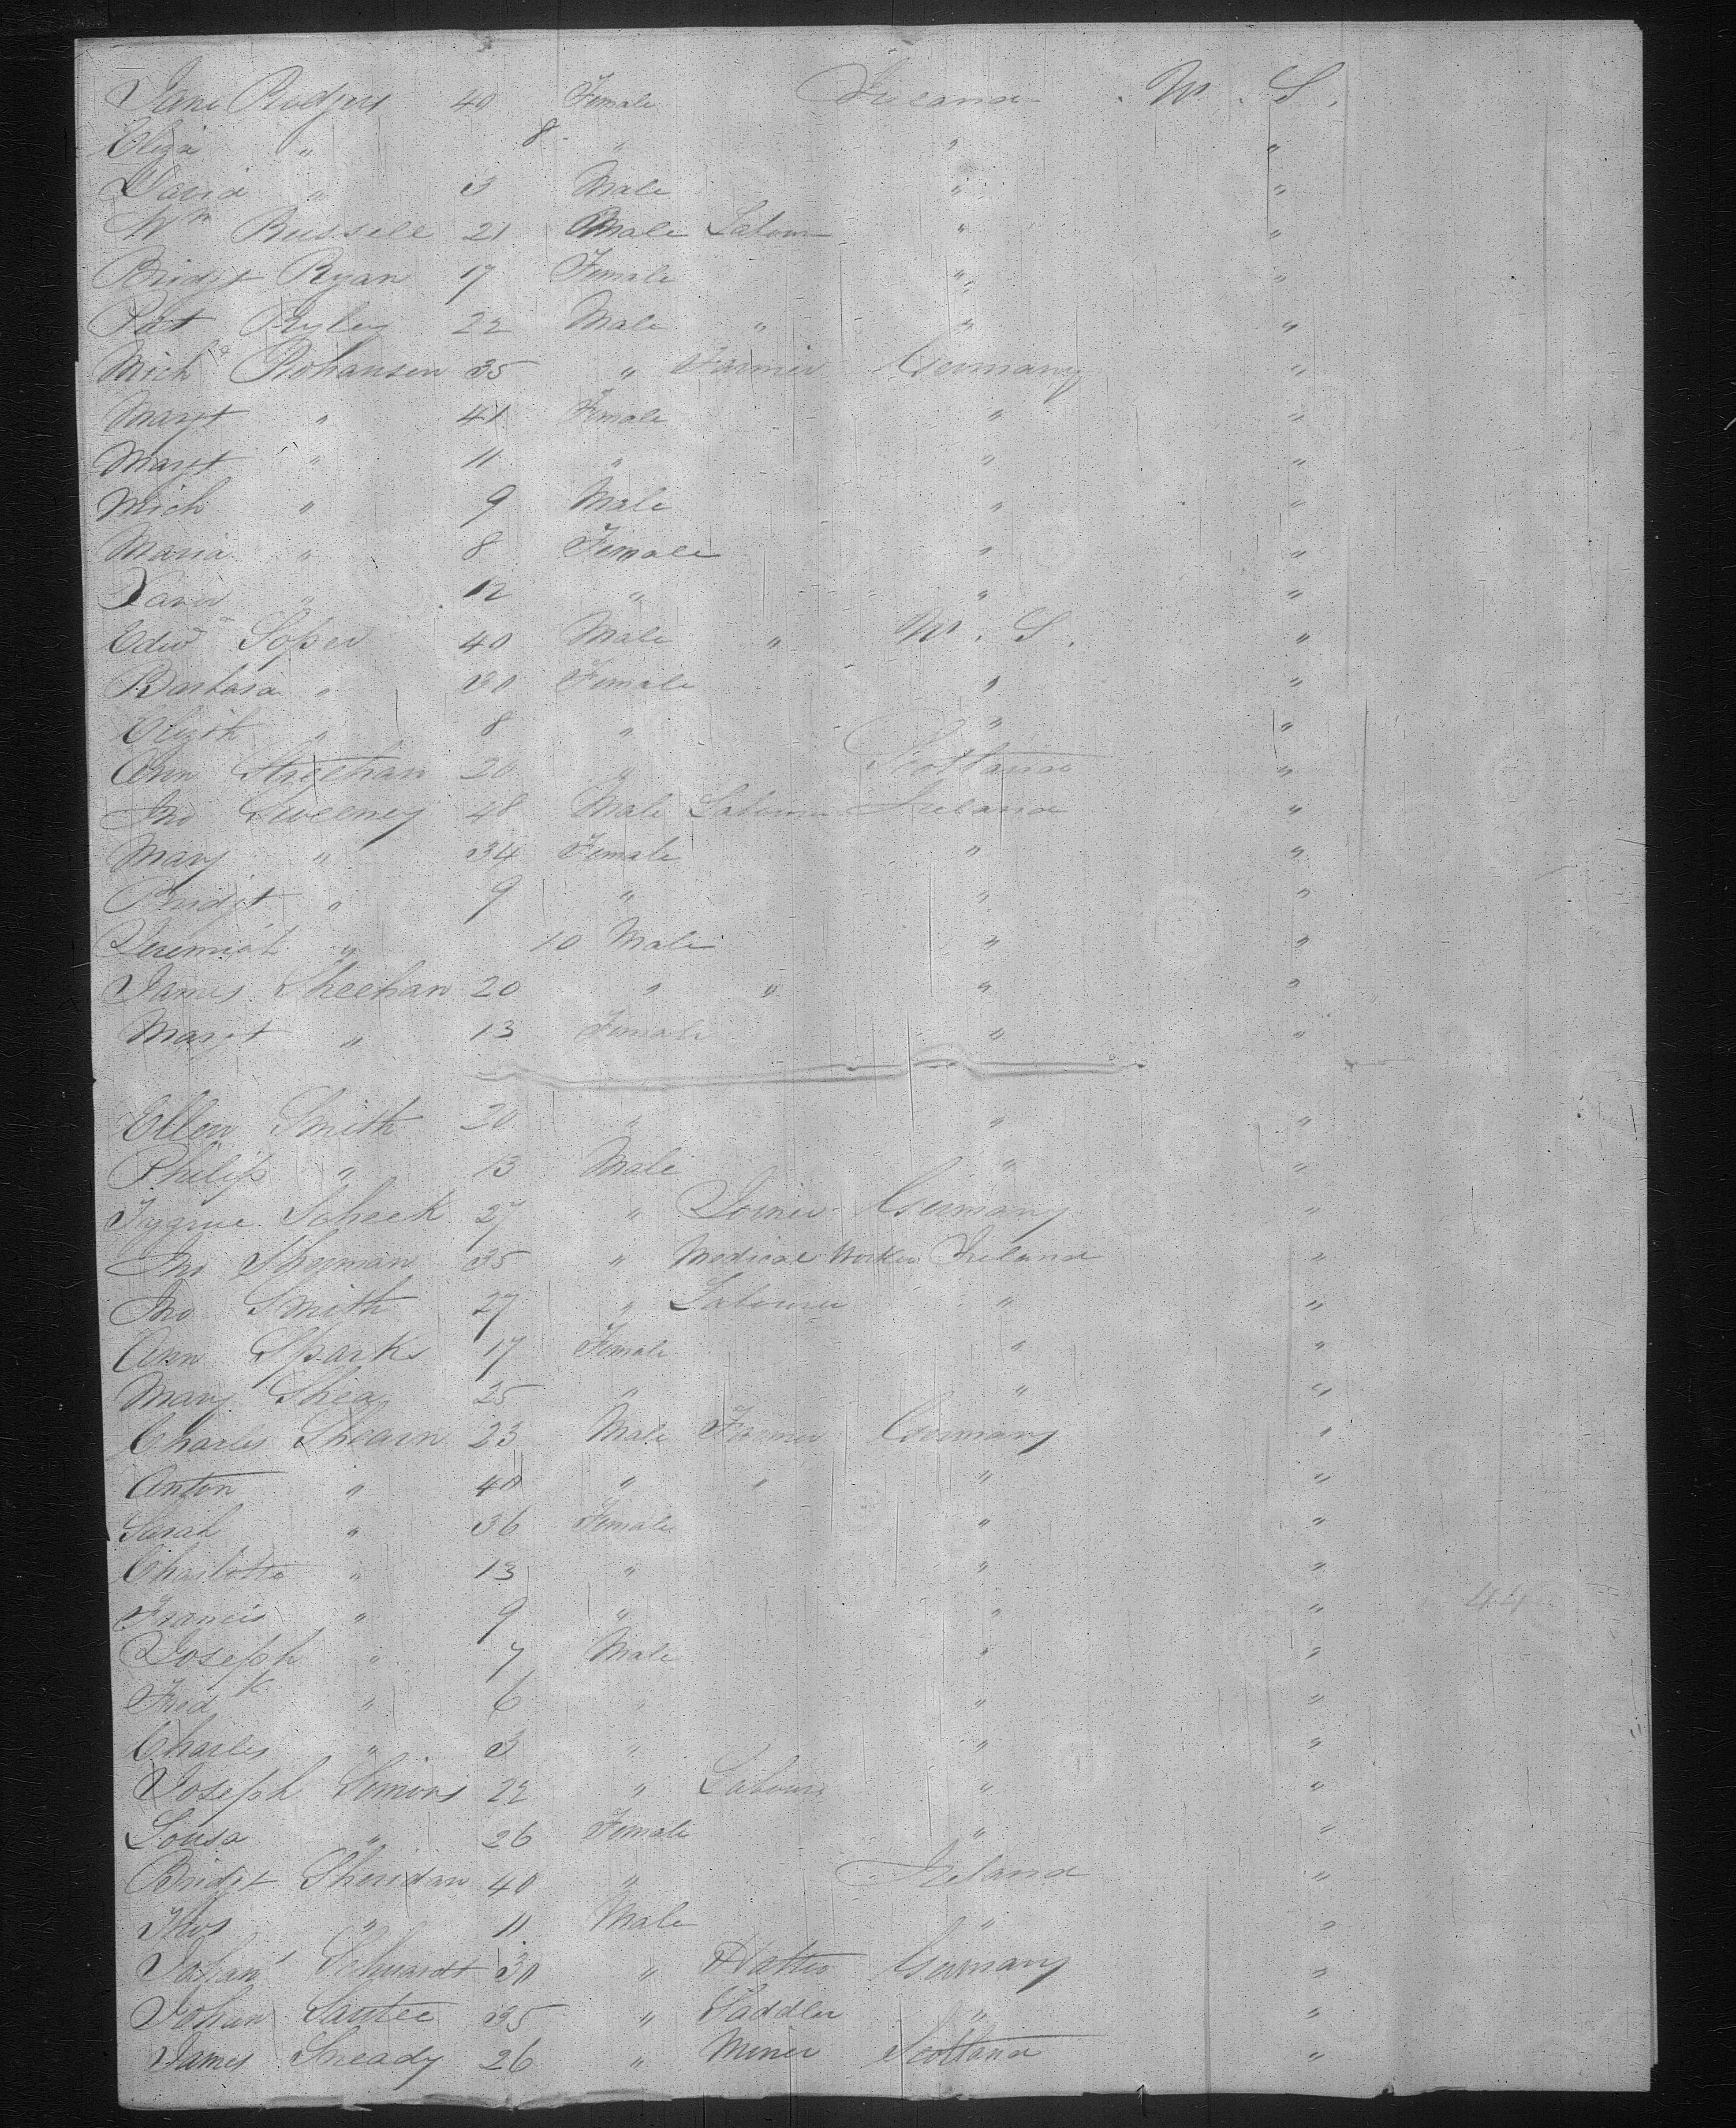 Jane Rodgers 40 Female Ireland U. S.
Eliza " 8 " " "
David " 3 Male " "
Wm Russell 21 Male Labour " "
Bridgt Ryan 17 Female " "
Pat Ryley 22 Male " " "
Michl Rohansen 35 " Farmer Germany "
Margt " 41 Female " "
Margt " 11 " " "
Mich " 9 Male " "
Maria " 8 Female " "
Xaver " 12 " " "
Edwd Soper 40 Male " U. S. "
Barbara " 30 Female " "
Elizth " 8 " " "
Ann Streehan 20 " Scotland "
Jno Sweeney 48 Male Labour Ireland "
Mary " 34 Female " "
Bridgt " 9 " " "
Jeremiah " 10 Male " "
James Sheehan 20 " " " "
Margt " 13 Female " "
Ellen Smith 20 " " "
Philip " 13 Male " "
Scheck 27 " Joiner Germany "
Jno 35 " Medical Worker Ireland "
Jno Smith 27 " Labourer " "
Ann Sparks 17 Female " "
Mary Shea 25 " " "
Charles Shearn 23 Male Farmer Germany "
Anton " 40 " " " "
Sarah " 36 Female " "
Charlotte " 13 " " "
Francis " 9 " " " 44
Joseph " 7 Male " "
Fredk " 6 " " "
Charles " 3 " " "
Joseph Simons 22 " Labour " "
Lousa " 26 Female " "
Bridgt Sheridan 40 " Ireland "
Thos " 11 Male " "
Johan Schuardt 30 " Hatter Germany "
Johan Sautee 35 " Saddler " "
James Sneady 26 " Miner Scotland "